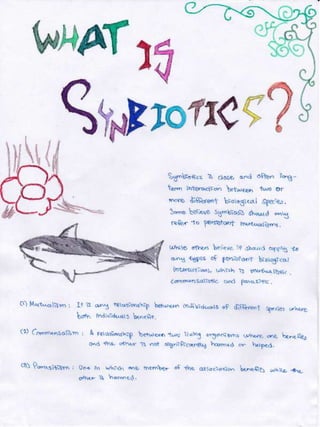 WHAT
IS
SYNBIOTICS?
Symbiotics is close and often long-
term interaction between two or
more different biological species.
Some believe symbiosis should only
refer to persistent mutualisms.
While others believe it should apply to
any types of persistant biological
interactions, which is mutualistic,
commensalistic and parasitic.
(1) Mutualism : It is any relationship between individuals of different species where
both individuals benefit.
(2) Commensalism : A relationship between two living organisms where one benefits
and the other is not significantly harmed or helped.
(3) Parasitism : One in which one member of the association benefits while the
other is harmed.